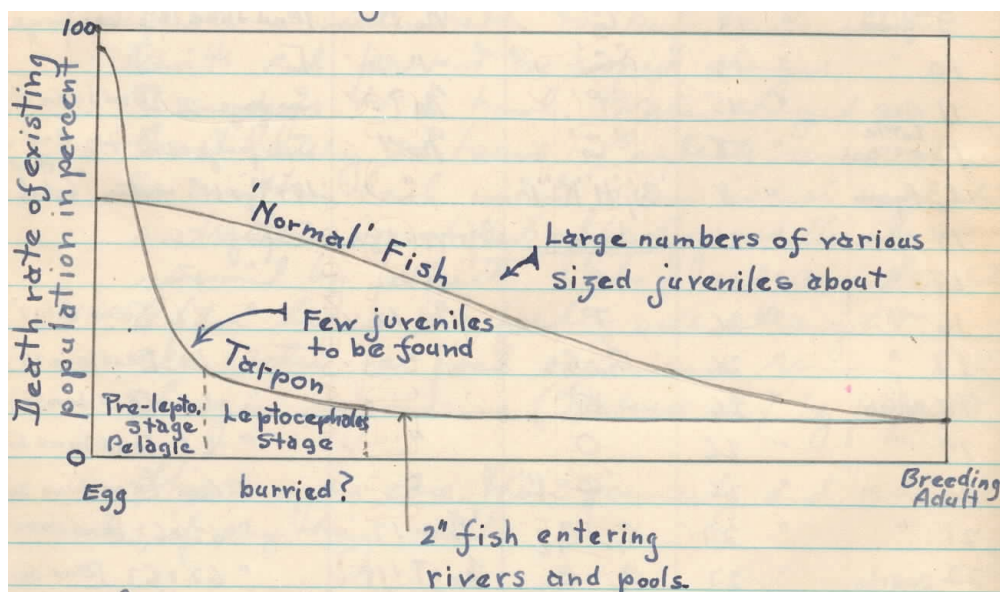 100
Death rate of existing
population in percent
0
'Normal' Fish
Large numbers of various
sized juveniles about
Few juveniles
to be found
Tarpon
Pre-lepto.
stage
Pelagic
Leptocephales
stage
Egg
burried?
Breeding
Adult
2" fish entering
rivers and pools.